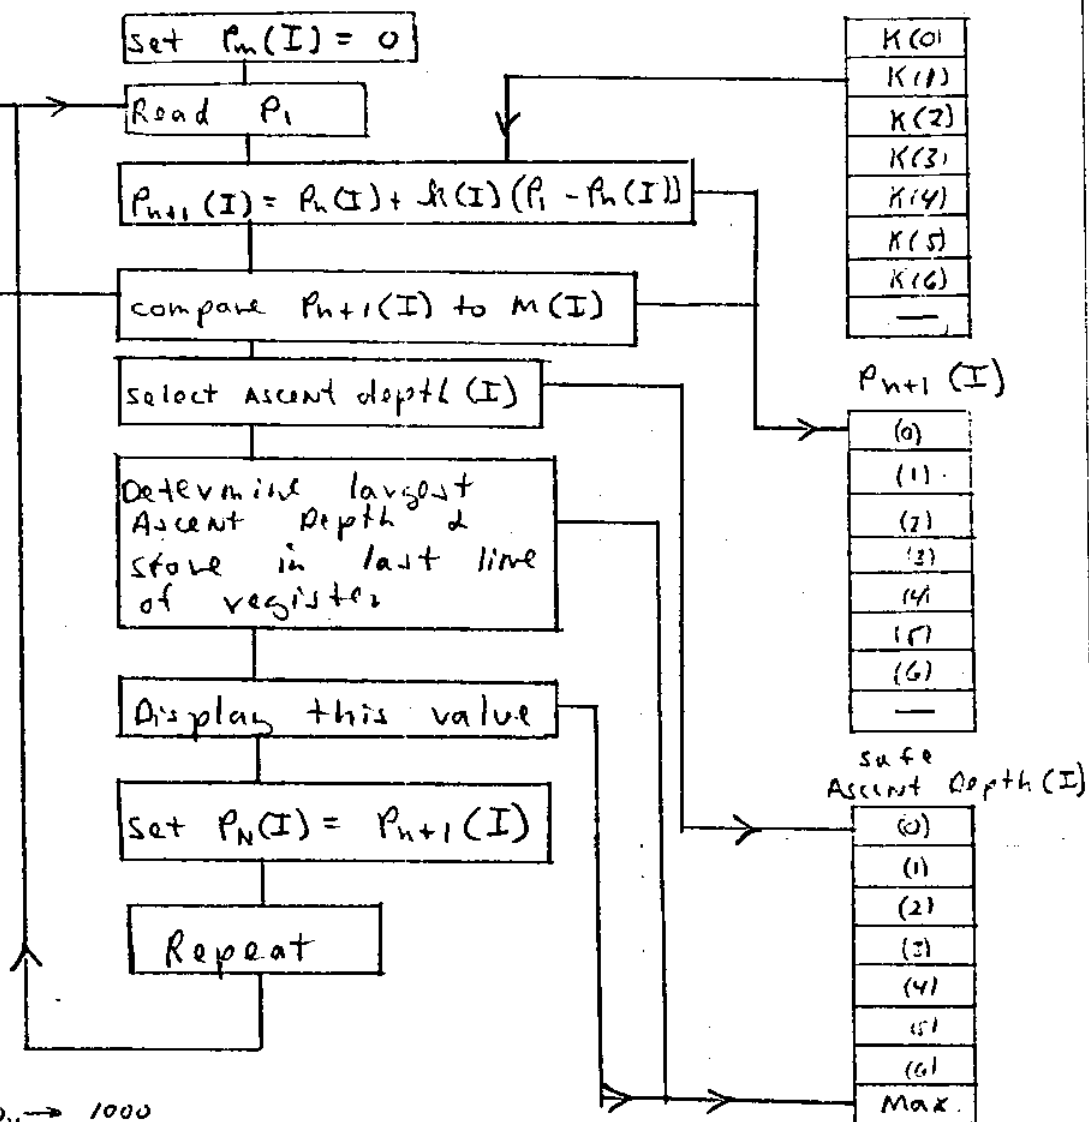 set Pm(I) = 0
Read P1
Pn+1(I) = Pn(I) + k(I) (P1 - Pn(I))
compare Pn+1(I) to M(I)
select Ascent depth (I)
Determine largest
Ascent Depth &
store in last line
of register
Display this value
set PN(I) = Pn+1(I)
Repeat
→ 1000
K(0)
K(1)
K(2)
K(3)
K(4)
K(5)
K(6)
—
Pn+1 (I)
(0)
(1)
(2)
(3)
(4)
(5)
(6)
—
safe
Ascent Depth (I)
(0)
(1)
(2)
(3)
(4)
(5)
(6)
Max.